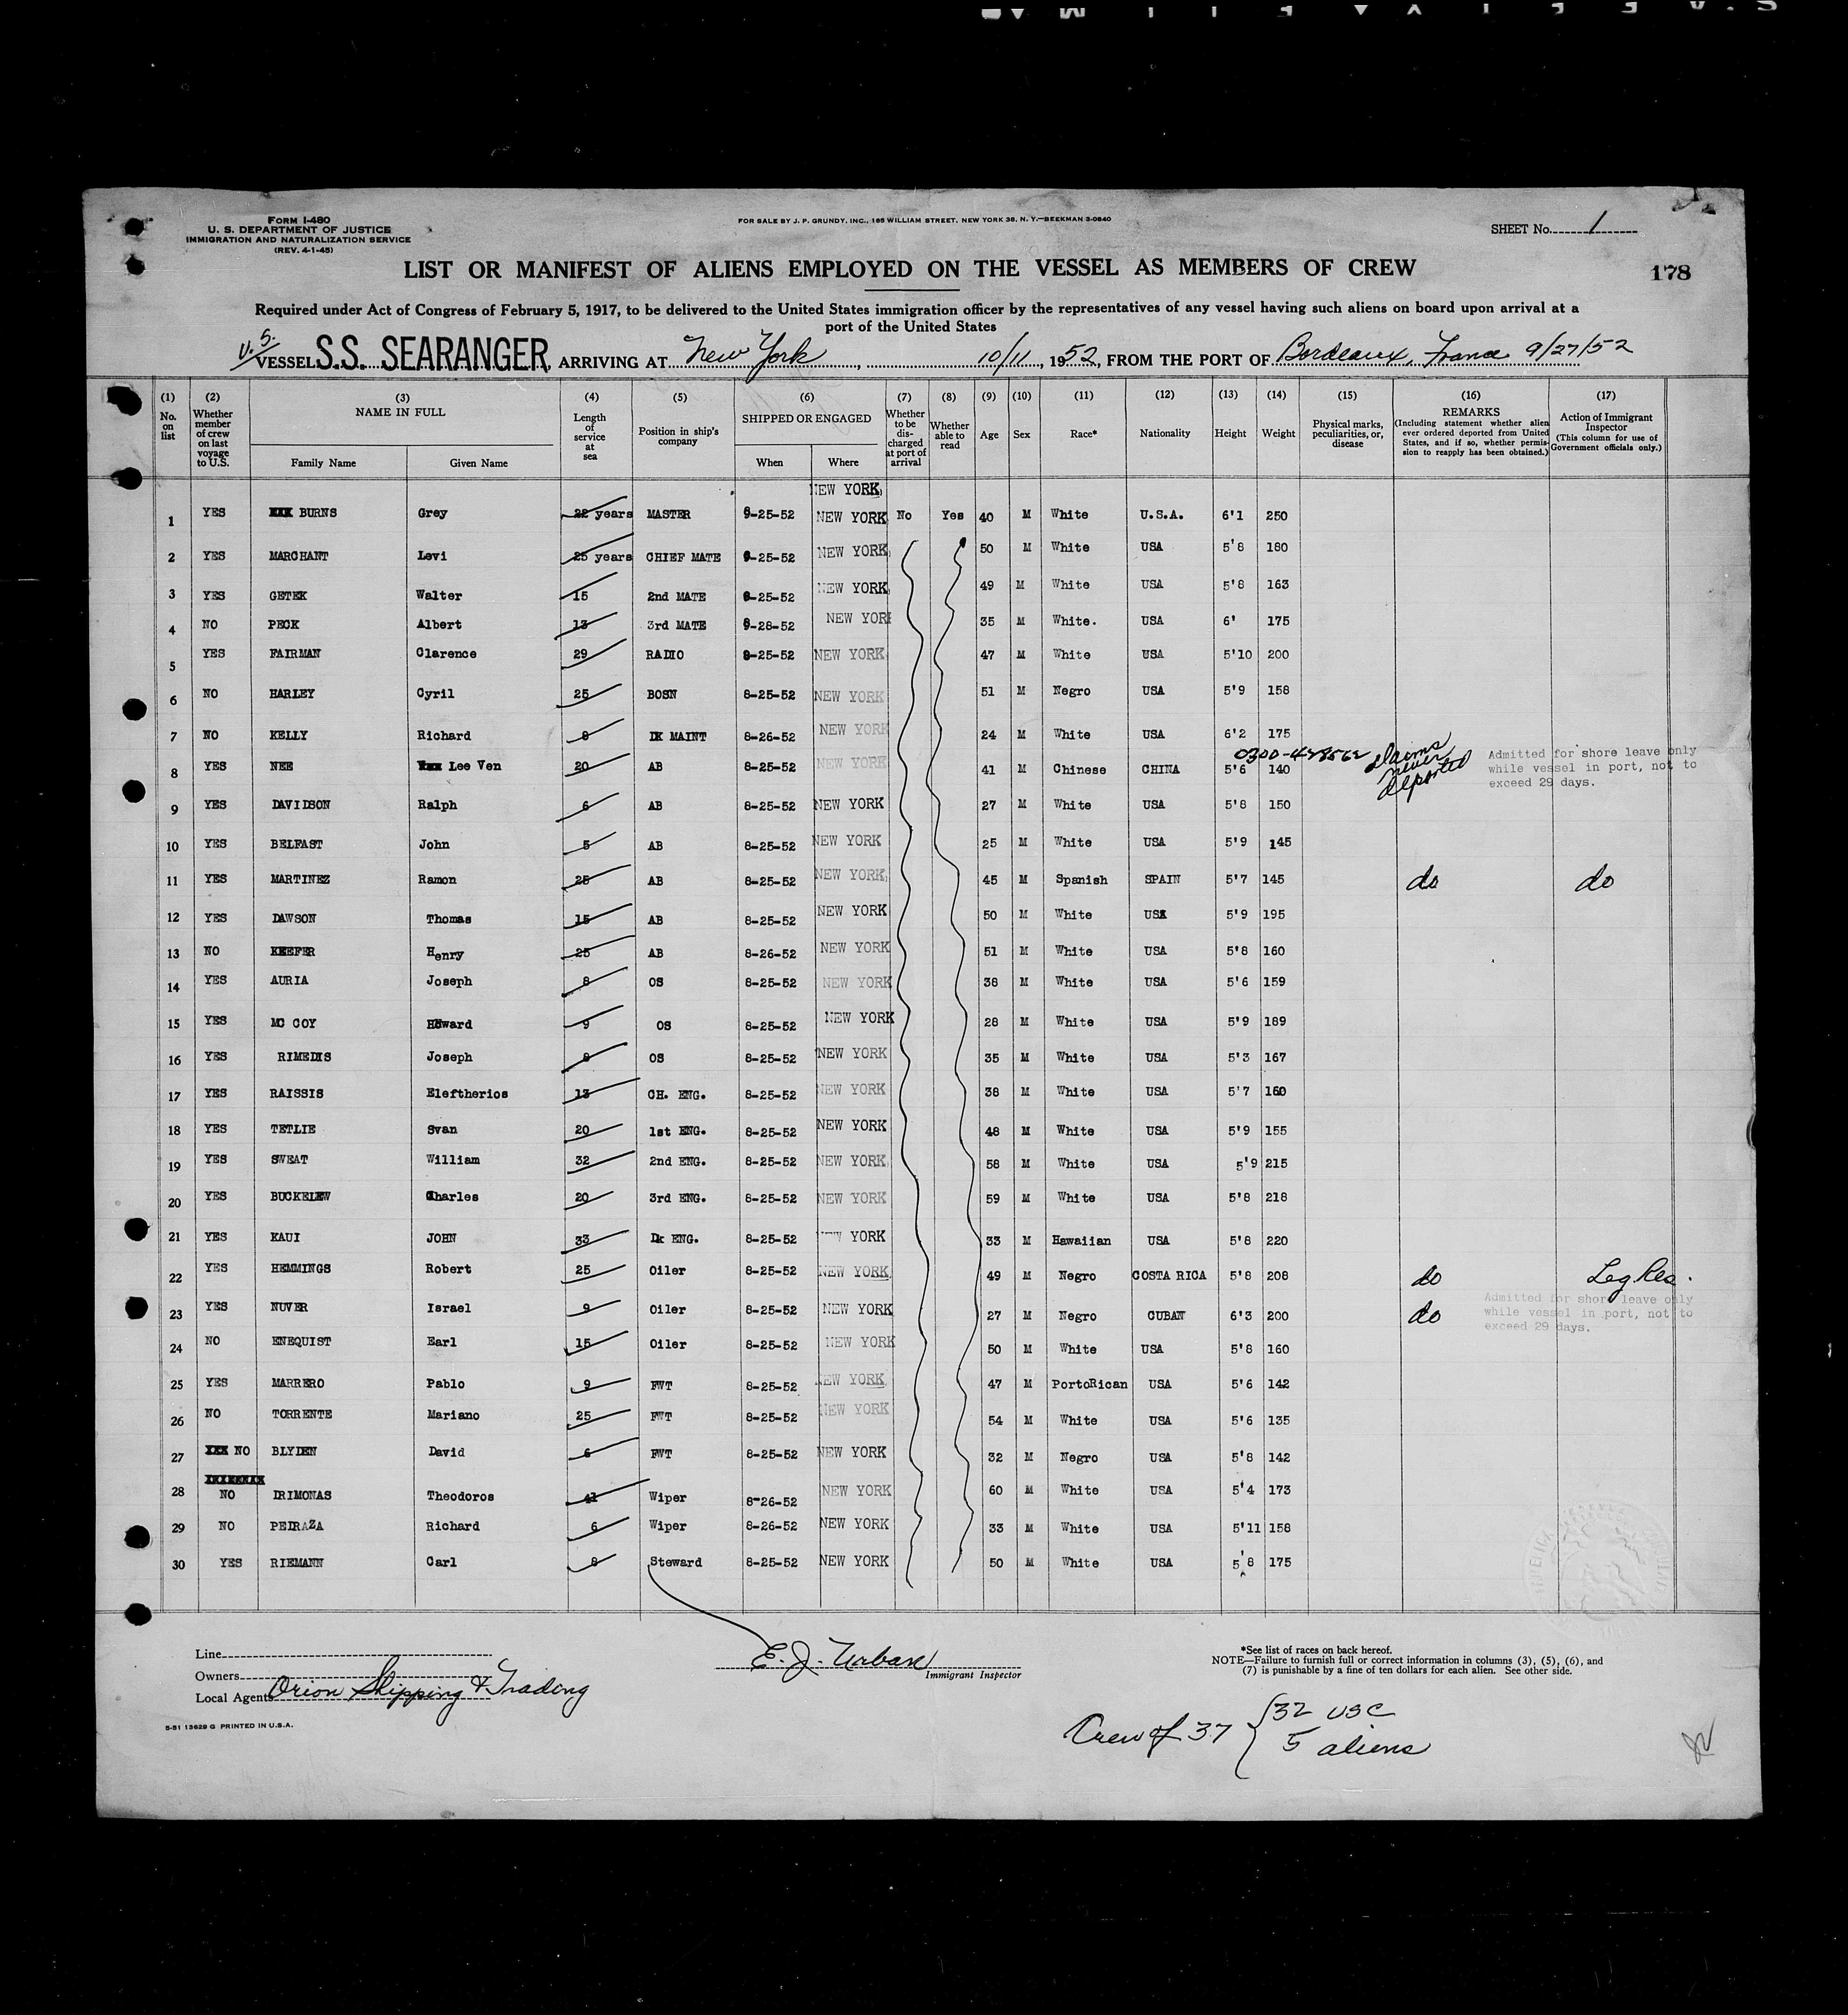 FORM I-480
U. S. DEPARTMENT OF JUSTICE
IMMIGRATION AND NATURALIZATION SERVICE
(REV. 4-1-45)
FOR SALE BY J. P. GRUNDY, INC., 165 WILLIAM STREET, NEW YORK 38, N. Y.—BEEKMAN 3-0840
SHEET No. 1
LIST OR MANIFEST OF ALIENS EMPLOYED ON THE VESSEL AS MEMBERS OF CREW
178
Required under Act of Congress of February 5, 1917, to be delivered to the United States immigration officer by the representatives of any vessel having such aliens on board upon arrival at a
port of the United States
U.S. VESSEL S.S. SEARANGER, ARRIVING AT New York, 10/11, 1952, FROM THE PORT OF Bordeaux, France 9/27/52
(1) No. on list
(2) Whether member of crew on last voyage to U.S.
(3) NAME IN FULL Family Name Given Name
(4) Length of service at sea
(5) Position in ship's company
(6) SHIPPED OR ENGAGED When Where
(7) Whether to be discharged at port of arrival
(8) Whether able to read
(9) Age
(10) Sex
(11) Race*
(12) Nationality
(13) Height
(14) Weight
(15) Physical marks, peculiarities, or, disease
(16) REMARKS (Including statement whether alien ever ordered deported from United States, and if so, whether permission to reapply has been obtained.)
(17) Action of Immigrant Inspector (This column for use of Government officials only.)
NEW YORK
1 YES XXX BURNS Grey 22 years MASTER 8-25-52 NEW YORK No Yes 40 M White U.S.A. 6'1 250
2 YES MARCHANT Levi 25 years CHIEF MATE 8-25-52 NEW YORK 50 M White USA 5'8 180
3 YES GETEK Walter 15 2nd MATE 8-25-52 NEW YORK 49 M White USA 5'8 163
4 NO PECK Albert 13 3rd MATE 8-28-52 NEW YOR 35 M White. USA 6' 175
5 YES FAIRMAN Clarence 29 RADIO 8-25-52 NEW YORK 47 M White USA 5'10 200
6 NO HARLEY Cyril 25 BOSN 8-25-52 NEW YORK 51 M Negro USA 5'9 158
7 NO KELLY Richard 8 DK MAINT 8-26-52 NEW YORK 24 M White USA 6'2 175
0300-428562 claims never deported
8 YES NEE Lee Ven 20 AB 8-25-52 NEW YORK 41 M Chinese CHINA 5'6 140 Admitted for shore leave only while vessel in port, not to exceed 29 days.
9 YES DAVIDSON Ralph 6 AB 8-25-52 NEW YORK 27 M White USA 5'8 150
10 YES BELFAST John 5 AB 8-25-52 NEW YORK 25 M White USA 5'9 145
11 YES MARTINEZ Ramon 25 AB 8-25-52 NEW YORK 45 M Spanish SPAIN 5'7 145 do do
12 YES DAWSON Thomas 15 AB 8-25-52 NEW YORK 50 M White USA 5'9 195
13 NO KEEFER Henry 25 AB 8-26-52 NEW YORK 51 M White USA 5'8 160
14 YES AURIA Joseph 8 OS 8-25-52 NEW YORK 38 M White USA 5'6 159
15 YES MC COY Edward 9 OS 8-25-52 NEW YORK 28 M White USA 5'9 189
16 YES RIMEDIS Joseph 8 OS 8-25-52 NEW YORK 35 M White USA 5'3 167
17 YES RAISSIS Eleftherios 13 CH. ENG. 8-25-52 NEW YORK 38 M White USA 5'7 160
18 YES TETLIE Svan 20 1st ENG. 8-25-52 NEW YORK 48 M White USA 5'9 155
19 YES SWEAT William 32 2nd ENG. 8-25-52 NEW YORK 58 M White USA 5'9 215
20 YES BUCKELEW Charles 20 3rd ENG. 8-25-52 NEW YORK 59 M White USA 5'8 218
21 YES KAUI JOHN 33 Dk ENG. 8-25-52 NEW YORK 33 M Hawaiian USA 5'8 220
22 YES HEMMINGS Robert 25 Oiler 8-25-52 NEW YORK 49 M Negro COSTA RICA 5'8 208 do Leg Res.
23 YES NUVER Israel 9 Oiler 8-25-52 NEW YORK 27 M Negro CUBAN 6'3 200 do Admitted for shore leave only while vessel in port, not to exceed 29 days.
24 NO ENEQUIST Earl 15 Oiler 8-25-52 NEW YORK 50 M White USA 5'8 160
25 YES MARRERO Pablo 9 FWT 8-25-52 NEW YORK 47 M PortoRican USA 5'6 142
26 NO TORRENTE Mariano 25 FWT 8-25-52 NEW YORK 54 M White USA 5'6 135
27 XXX NO BLYDEN David 6 FWT 8-25-52 NEW YORK 32 M Negro USA 5'8 142
28 XXXXXXXX NO IRIMONAS Theodoros 41 Wiper 8-26-52 NEW YORK 60 M White USA 5'4 173
29 NO PEIRAZA Richard 6 Wiper 8-26-52 NEW YORK 33 M White USA 5'11 158
30 YES RIEMANN Carl 8 Steward 8-25-52 NEW YORK 50 M White USA 5'8 175
Line
Owners
Local Agents Orion Shipping & Trading
E. J. Urban
Immigrant Inspector
*See list of races on back hereof.
NOTE—Failure to furnish full or correct information in columns (3), (5), (6), and
(7) is punishable by a fine of ten dollars for each alien. See other side.
5-51 13629 G PRINTED IN U.S.A.
Crew of 37 { 32 USC
5 aliens